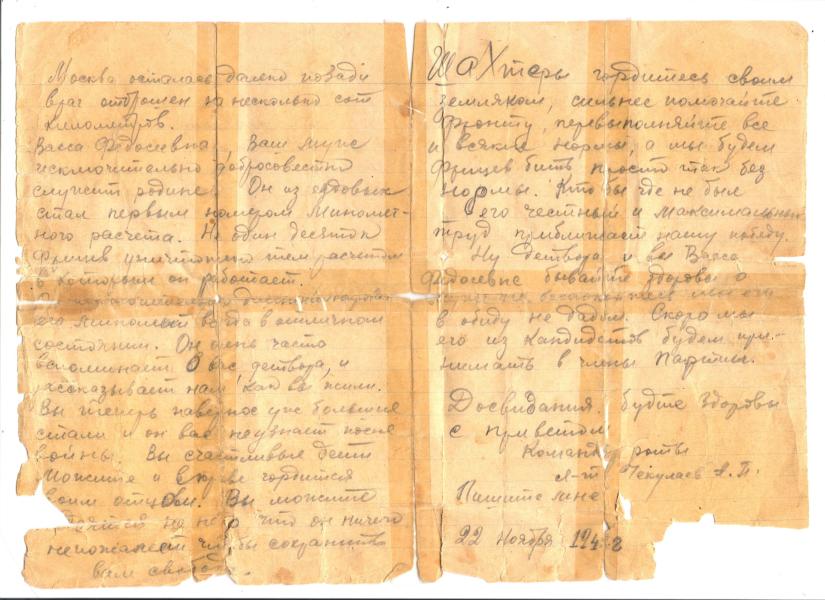 Москва осталась далеко позади
враг отброшен на несколько сот
километров.
Васса Федосеевна, Ваш муж
исключительно добросовестно
служит родине. Он из ездовых
стал первым номером Миномет-
ного расчета. Не один десяток
Фрицев уничтожил тем расчетом
в котором он работает.
его миномет всегда в отличном
состоянии. Он очень часто
вспоминает о вас, детвора, и
рассказывает нам как вы жили.
Вы теперь наверное уже большие
стали и он вас не узнает после
войны. Вы счастливые дети
Можите и вправе гордится
воим отцом. Вы можите
на него что он ничего
непожалеет чтобы сохранить
вам
Шахтеры гордитесь своим
земляком, сильнее помочайте
фронту, перевыполняйте все
и всякие нормы, а мы будем
Фрицев бить просто так без
нормы. Кто бы где не был
его честный и Максимальный
труд приближает нашу победу.
Ну детвора и вы Васса
Федосевне бывайте здоровы о
муже не беспокойтесь мы его
в обиду не дадим. Скоро мы
его из Кандидатов будем при-
нимать в члены Партии.
Досвидания. будте здоровы
с приветом
Командир роты
л-т Чекулаев А. П.
Пишите мне
22 Ноября 194 г